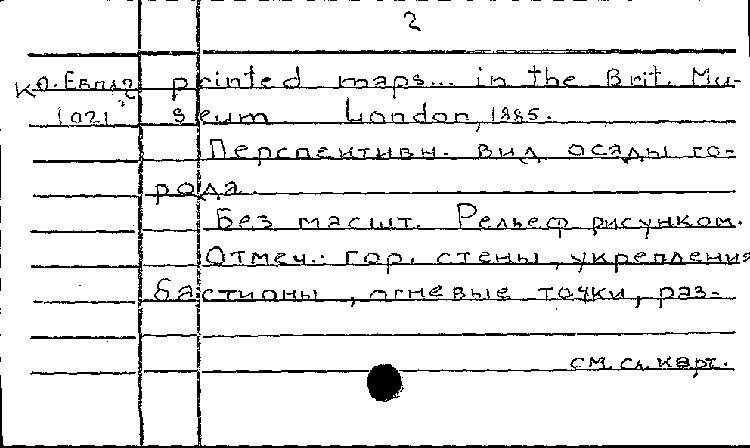 2
Ко. Евпа2 printed maps... in the Brit. Mu-
1021 seum. London, 1885.
Перспективн. вид осады го-
рода.
Без масшт. Рельеф рисунком.
Отмеч.: гор. стены, укрепления
бастионы, огневые точки, раз-
см. сл. карт.